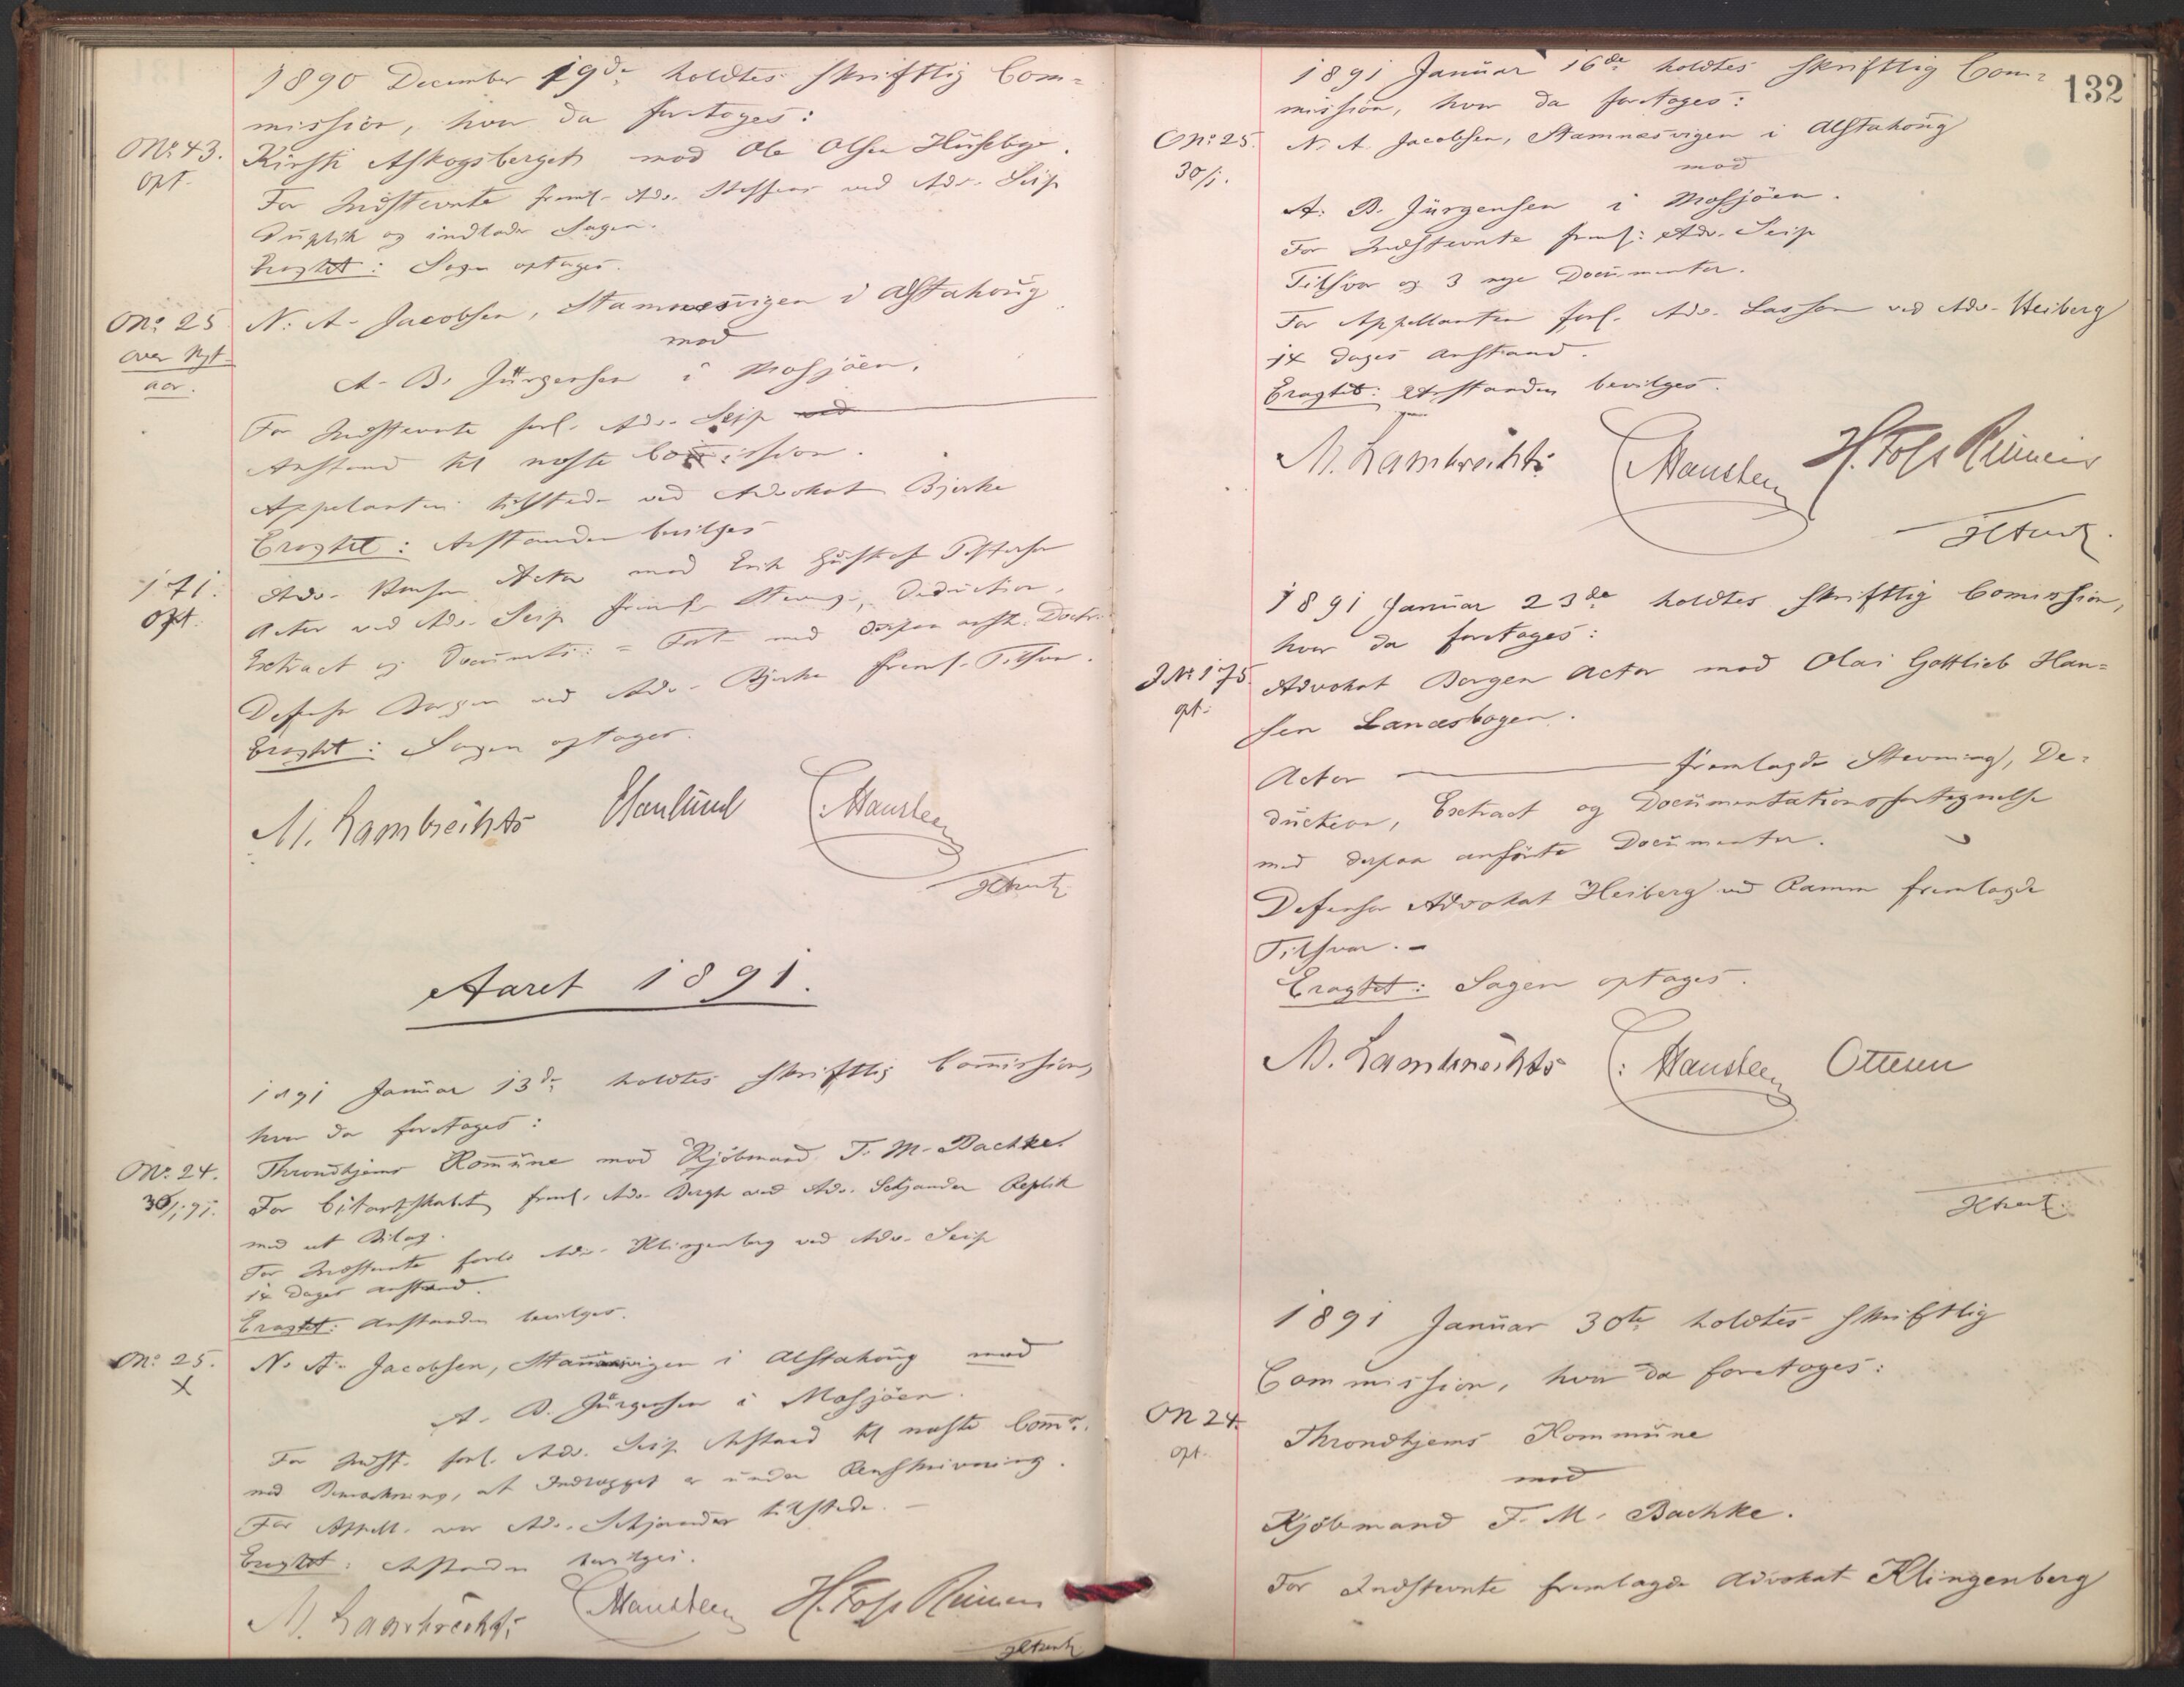 1890 December 19de holdtes skriftlig Com=
mission, hvor da foretoges:
No. 43. Kirsti Askogsberget mod Ole Olsen Huseby.
opt. For Indstevnte freml. Adv. Steffens ved Adv. Seip
Duplik og indlader Sagen.
Eragtet: Sagen optages.
No. 25 N. A. Jacobsen, Stamnesvigen i Alstahoug
over Nyt- mod
aar. A. B. Jürgensen i Mosjöen.
For Indstevnte forl. Adv. Seip
Anstand til næste Comission.
Appelanten tilstede ved Advokat Bjerke
Eragtet: Anstanden bevilges
171. Adv. Actor mod Erik Gustaf
opt. Actor ved Adv. Seip freml. Stevning, Deduction,
Extract og Documents: = Fort. med derpaa anf. Doctr.
Defensor Bergen ved Adv. Bjerke freml. Tilsvar.
Eragtet: Sagen optages.
M. Lambrechts Hansteen
Aaret 1891.
1891 Januar 13de holdtes skriftlig Comission,
hvor da foretoges:
No. 24. Throndhjems Komune mod Kjöbmand F. M. Bachke.
30/1.91. For Citantskabet freml. Adv. Bergh ved Adv. Schjander Replik
med et Bilag.
For Indstevnte forl. Adv. Klingenberg ved Adv. Seip
14 Dages Anstand.
Eragtet: Anstanden bevilges.
No. 25. N. A. Jacobsen, Stamnesvigen i Alstahoug mod
X A. B. Jürgensen i Mosjöen.
For Indst. forl. Adv. Seip Anstand til næste Comn.
med Bemærkning, at Indlægget er under Renskrivning.
For Appell. var Adv. Schjander tilstede. -
Eragtet: Anstanden bevilges.
M. Lambrechts Hansteen H. Foss
132
1891 Januar 16de holdtes skriftlig Com=
mission, hvor da foretoges:
No. 25. N. A. Jacobsen, Stamnesvigen i Alstahoug
30/1. mod
A. B. Jürgensen i Mosjöen.
For Indstevnte freml: Adv. Seip
Tilsvar og 3 nye Documenter.
For Appellanten forl. Adv. Lasson ved Adv. Heiberg
14 Dages Anstand.
Eragtet: Anstanden bevilges.
M. Lambrechts Hansteen H. Foss
1891 Januar 23de holdtes skriftlig Comission,
hvor da foretoges:
J No 175. Advokat Bergen Actor mod Olai Gottlieb Han=
opt. sen Lanæsbogen.
Actor fremlagde Stevning, De=
duction, Extract og Documentationsfortegnelse
med derpaa anförte Documenter.
Defensor Advokat Heiberg ved Ramm fremlagde
Tilsvar. -
Eragtet: Sagen optages.
M. Lambrechts Hansteen Ottesen
1891 Januar 30te holdtes skriftlig
Commission, hvor da foretoges:
ON 24. Throndhjems Kommune
opt. mod
Kjöbmand F. M. Bachke.
For Indstevnte fremlagde Advokat Klingenberg